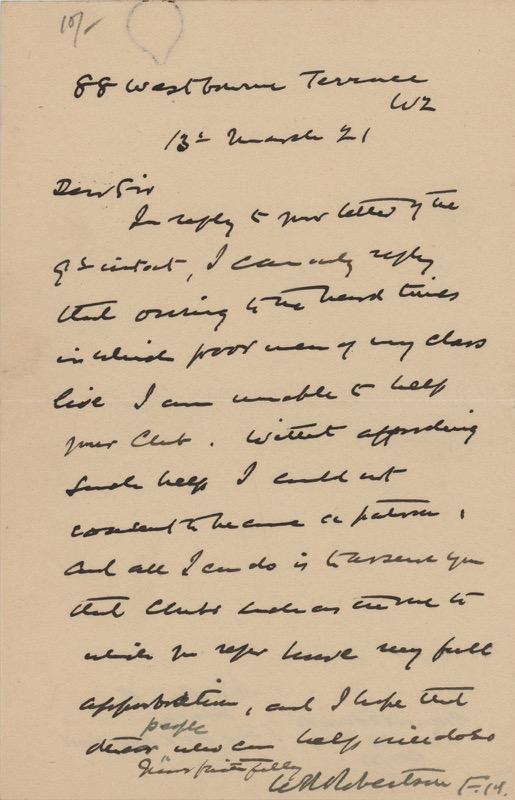 10/-
88 Westbourne Terrace
W2
13th March 21
Dear Sir
In reply to your letter of the
9th instant, I can only reply
that owing to the hard times
in which poor men of my class
live I am unable to help
your Club. Without affording
such help I could not
consent to become a patron,
and all I can do is to assure you
that Clubs such as the one to
which you refer have my full
approbation, and I hope that
people
who can help will do so
Yours faithfully
W R Robertson F.M.